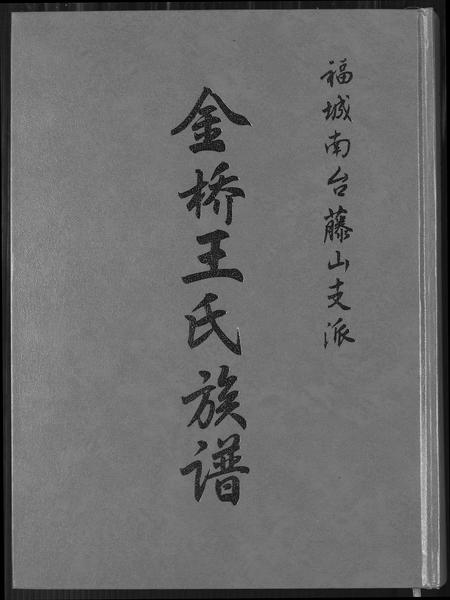 福城南台藤山支派
金桥王氏族谱